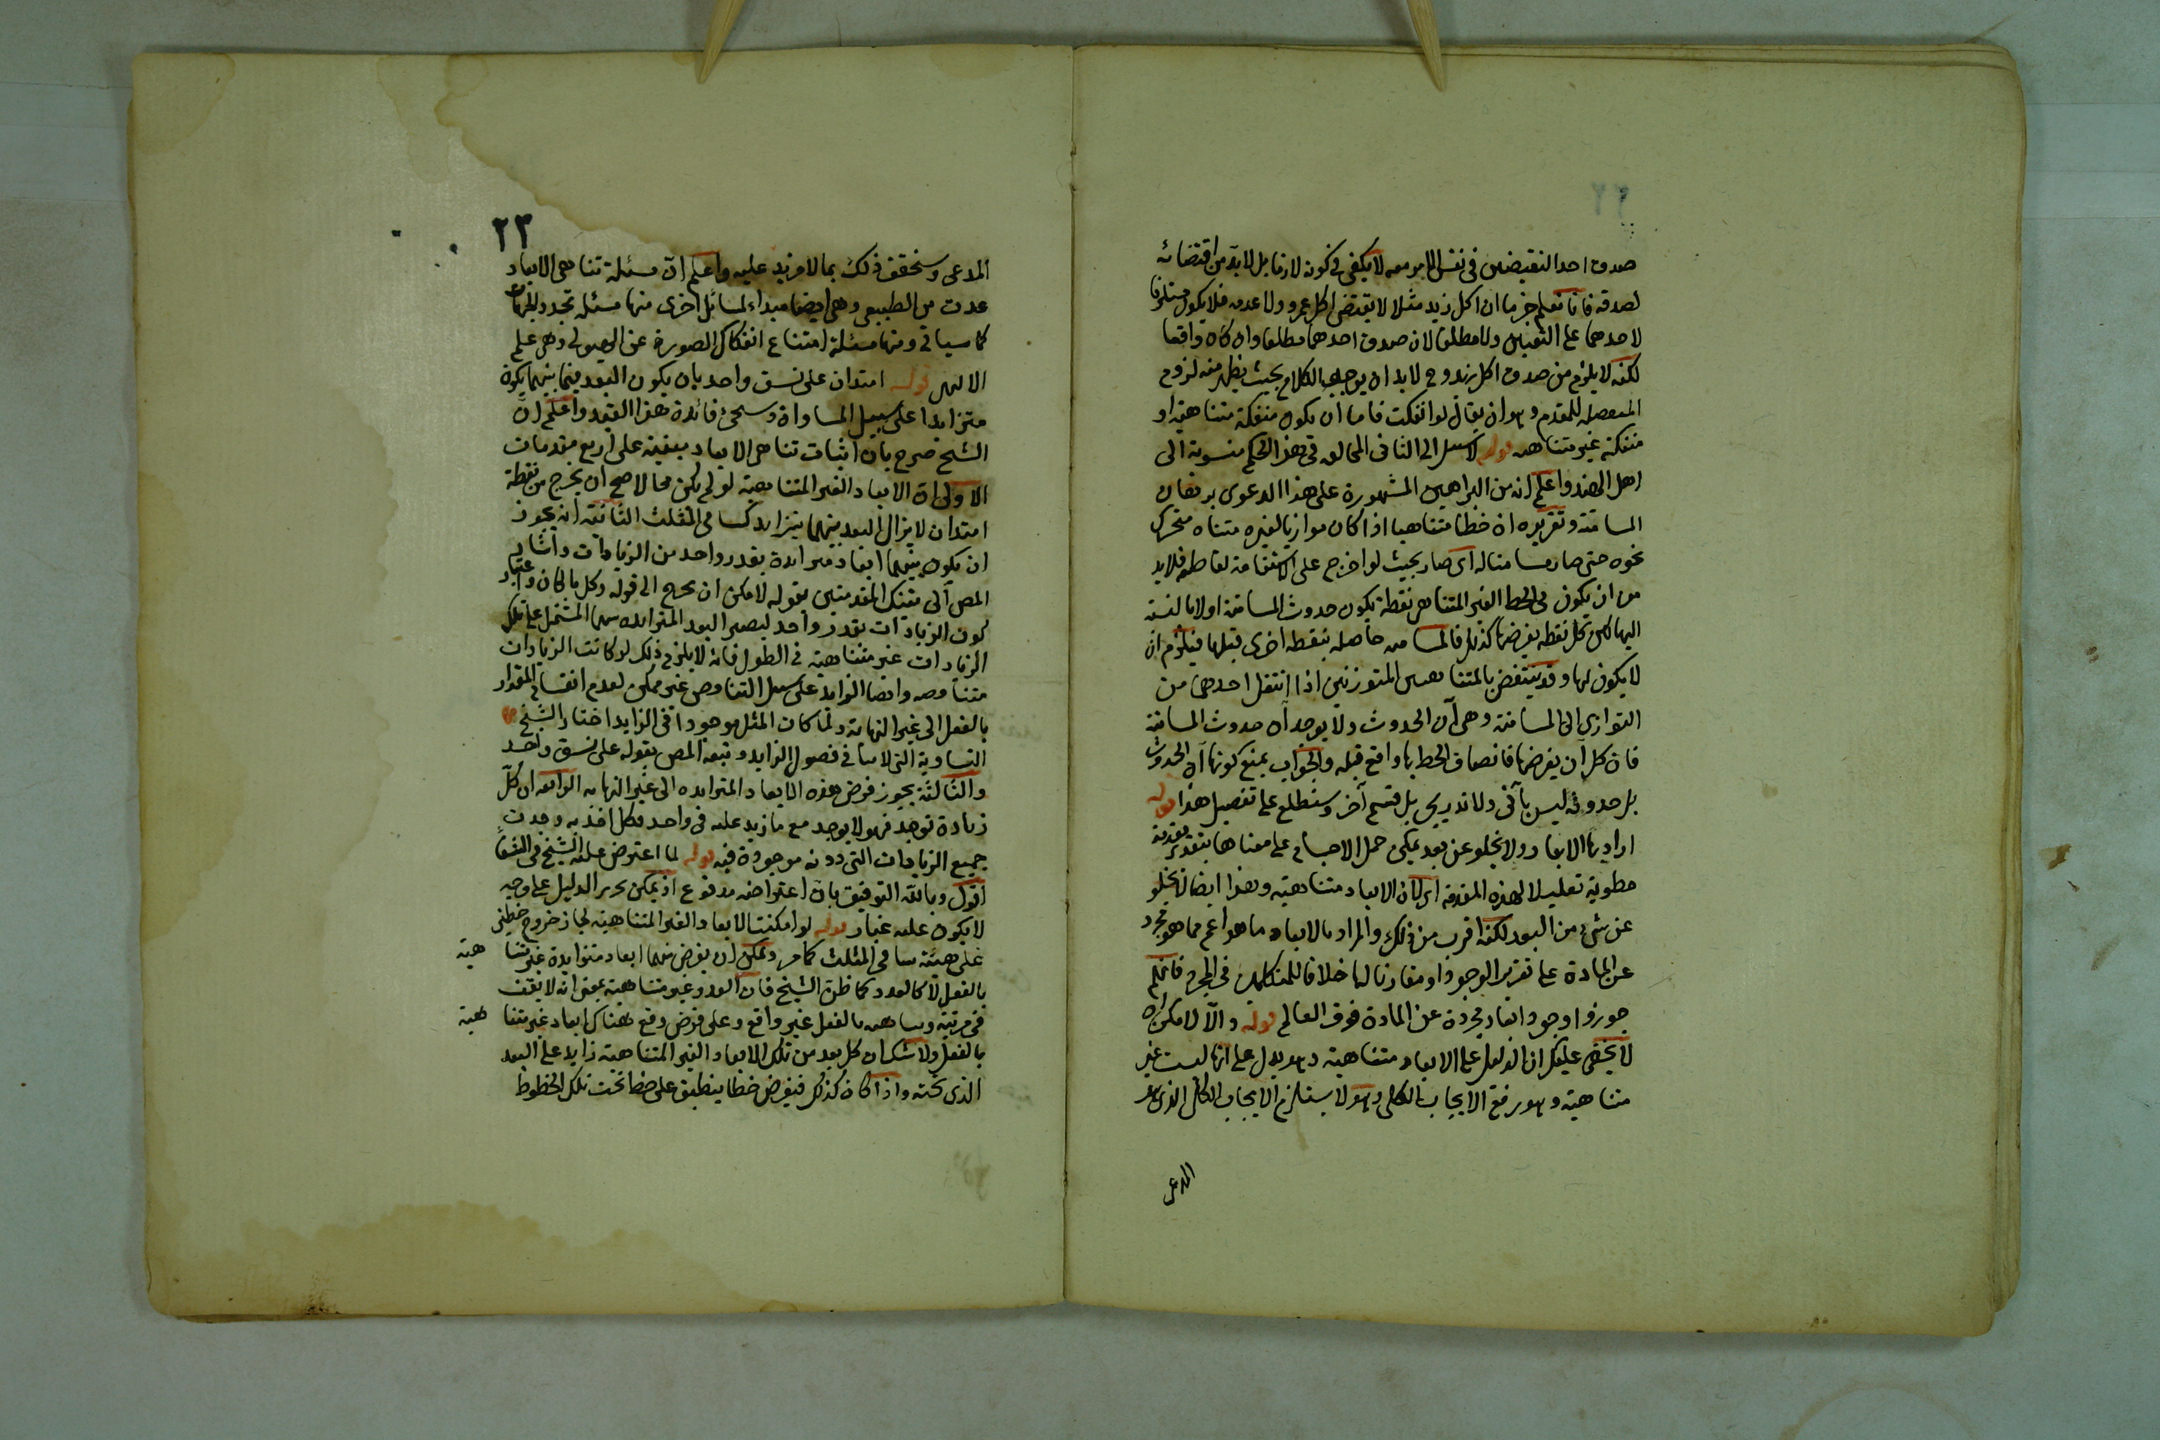 صدق احد النقيضين فى نفس الامر معه لا يكفى فى كونه لازما بل لا بد من اقتضائه
لصدقه فانا نعلم جزما ان اكل زيد مثلا لا يقتضى اكل عمرو ولا عدمه فلا يكون مستلزما
لاحدهما على التعيين ولا مطلقا لان صدق احدهما مطلقا وان كان واقعا
لكنه لا يلزم من صدق اكل زيد وح لا بد ان يوجه الكلام بحيث يظهر منه لزوم
المنفصلة للمقدم وهو ان يقال لو انفكت فاما ان يكون منفكة متناهية او
منفكة غير متناهية قوله لا سبيل الى الثانى المخالف فى هذا الحكم منسوبة الى
اهل الهند واعلم انه من البراهين المشهورة على هذا الدعوى برهان
المسامتة وتقريره ان خطا متناهيا اذا كان موازيا لغيره متناه متحرك
نحوه حتى صار مسامتا له اى صار بحيث لو اخرج على الاستقامة لقاطعه فلا بد
من ان يكون فى الخط الغير المتناهى نقطة يكون حدوث المسامتة اولا بالنسبة
اليها لكن كل نقطة يفرضها كذلك فالمسامتة حاصلة بنقطة اخرى قبلها فيلزم ان
لا يكون لها وقد ينتقض بالمتناهيين المتوازيين اذا انتقل احدهما من
التوازى الى المسامتة وهى آن الحدوث ولا يوجد آن حدوث المسامتة
فان كل آن يفرضها فانصاف الخط بها واقع قبله والجواب بمنع كونها آن الحدوث
بل حدوثه ليس بآنى ولا تدريجى بل قسم آخر وستطلع على تفصيل هذا قوله
اراد بها الابعاد ولا يخلو عن بعد يمكن حمل الاجسام على معناها بتقدير مقدمة
مطوية تعليلا لهذه المقدمة اى لان الابعاد متناهية وهذا ايضا لا يخلو
عن شىء من البعد لكنه اقرب من ذلك والمراد بالابعاد ما هو اعم مما هو مجرد
عن المادة على تقدير الوجود او مقارنا لها خلافا للمتكلمين فى المجرد فانهم
جوزوا وجود ابعاد مجردة عن المادة فوق العالم قوله والا لامكن اه
لا يخفى عليك ان الدليل على الابعاد متناهية وهو يدل على انها ليست غير
متناهية وهو رفع الايجاب الكلى وهو لا يستلزم الايجاب الكلى الذى هو
المدعى
٢٣
المدعى وسنحقق ذلك بما لا مزيد عليه واعلم ان مسئلة تناهى الابعاد
عدت من الطبيعى وهى ايضا مبداء لمسائل اخرى منها مسئلة تحدد الجهات
كما سياتى ومنها مسئلة امتناع انفكاك الصورة عن الهيولى وهى علم
الالهى قوله امتدان على نسق واحد بان يكون البعد فيما بينهما يكون
متزايدا على سبيل المساواة وسيجئ فائدة هذا القيد واعلم ان
الشيخ صرح بان اثبات تناهى الابعاد مبنية على اربع مقدمات
الاولى ان الابعاد الغير المتناهية لو لم يكن محالا صح ان يخرج من نقطة
امتدان لا يزال البعد بينهما يتزايد كساقى المثلث الثانية انه يجوز
ان يكون بينهما ابعاد متزايدة بقدر واحد من الزيادات واشار
المص الى بتنك المقدمتين بقوله لامكن ان يخرج الى قوله وكل ما كان واعتبار
كون الزيادات بقدر واحد ليصير البعد المتزايد بينهما المشتمل على تلك
الزيادات غير متناهية فى الطول فانه لا يلزم ذلك لو كانت الزيادات
متناقصة وايضا الزايد على سبيل التناقص غير ممكن لعدم انقسام المقدار
بالفعل الى غير النهاية ولما كان المثل موجودا فى الزايد اختار الشيخ
التساوية التى لا بينها فى فصول الزايد وتبعه المص بقوله على نسق واحد
والثالثة يجوز فرض هذه الابعاد المتزايدة الى غير النهاية الرابعة ان كل
زيادة توجد فهو لا يوجد مع ما زيد عليه فى واحد فكل اخذ به وجدت
جميع الزيادات التى دونه موجودة فيه قوله لما اعترض عليه الشيخ فى الشفا
اقول وبالله التوفيق بان اعتراضه مدفوع اذ يمكن تحرير الدليل على وجه
لا يكون عليه غبار قوله لو امكنت الابعاد الغير المتناهية لجاز خروج خطين
على هيئة ساقى المثلث كما مر ويمكن ان يفرض بينهما ابعاد متزايدة غير متنا هية
بالفعل لا كالعدد كما ظن الشيخ فان العدد غير متناهية بمعنى انه لا يقف
فى مرتبة وتناهيه بالفعل غير واقع وعلى فرض وقع هناك ابعاد غير متنا هية
بالفعل ولا شك ان كل بعد من تلك الابعاد الغير المتناهية زايد على البعد
الذى تحته واذا كان كذلك فيفرض خطا ينطبق على خط تحت تلك الخطوط